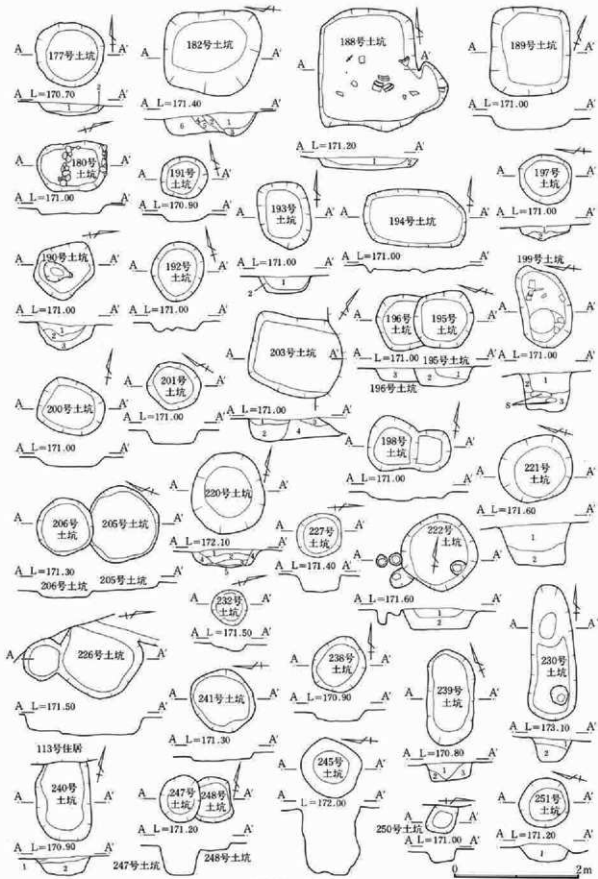 177号土坑
A A'
A L=170.70 A'
2
1
182号土坑
A A'
A L=171.40 A'
6 5 4 2 1 3
188号土坑
A A'
A L=171.20 A'
1 2
189号土坑
A A'
A L=171.00 A'
180号
土坑
A A'
A L=171.00 A'
191号
土坑
A A'
A L=170.90 A'
193号
土坑
A A'
A L=171.00 A'
2 1
194号土坑
A A'
A L=171.00 A'
197号
土坑
A A'
A L=171.00 A'
190号土坑
A A'
A L=171.00 A'
2 1
3
192号
土坑
A A'
A L=171.00 A'
203号土坑
A A'
A L=171.00 A'
2 4
196号
土坑
195号
土坑
A A'
A L=171.00 A'
195号土坑
3 2 1
196号土坑
199号土坑
A A'
A L=171.00 A'
2 1
S 3
200号土坑
A A'
A L=171.00 A'
201号
土坑
A A'
A L=171.00 A'
198号
土坑
A A'
A L=171.00 A'
221号
土坑
A A'
A L=171.60 A'
1
2
206号
土坑
205号土坑
A A'
A L=171.30 A'
206号土坑 205号土坑
220号土坑
A A'
A L=172.10 A'
227号
土坑
A A'
A L=171.40 A'
222号
土坑
A A'
A L=171.60 A'
1
2
232号
土坑
A A'
A L=171.50 A'
226号土坑
A A'
A L=171.50 A'
241号土坑
A A'
A L=171.30 A'
238号
土坑
A A'
A L=170.90 A'
239号
土坑
A A'
A L=170.80 A'
2 1 3
230号
土坑
A A'
A L=173.10 A'
2
113号住居
240号
土坑
A A'
A L=170.90 A'
1 2
247号
土坑
248号
土坑
A A'
A L=171.20 A'
247号土坑 248号土坑
245号
土坑
A A'
A L=172.00 A'
250号土坑
A A'
A L=171.00 A'
251号
土坑
A A'
A L=171.20 A'
1
0 2m